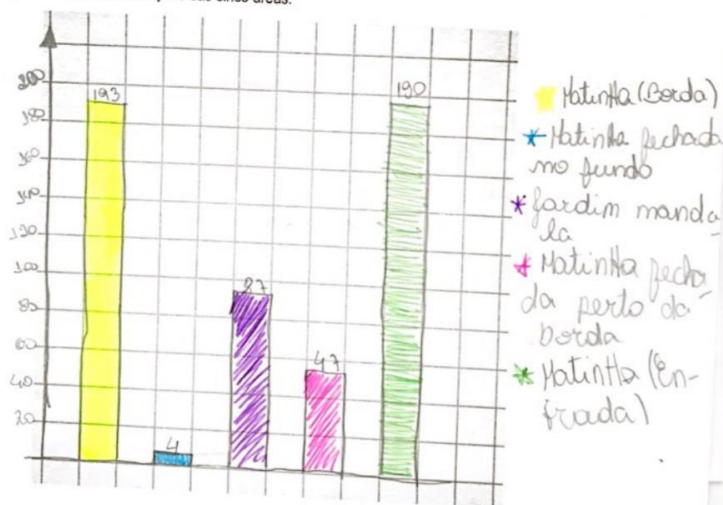 das cinco áreas.
200
180
160
140
120
100
80
60
40
20
193
4
87
47
190
Matinha (Borda)
Matinha fechada
no fundo
Jardim manda-
la
Matinha fecha
da perto da
borda
Matinha (En-
trada)